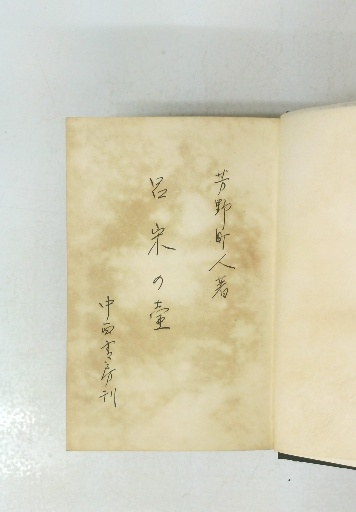 芳野町人著
呂宋の壷
中西書房刊